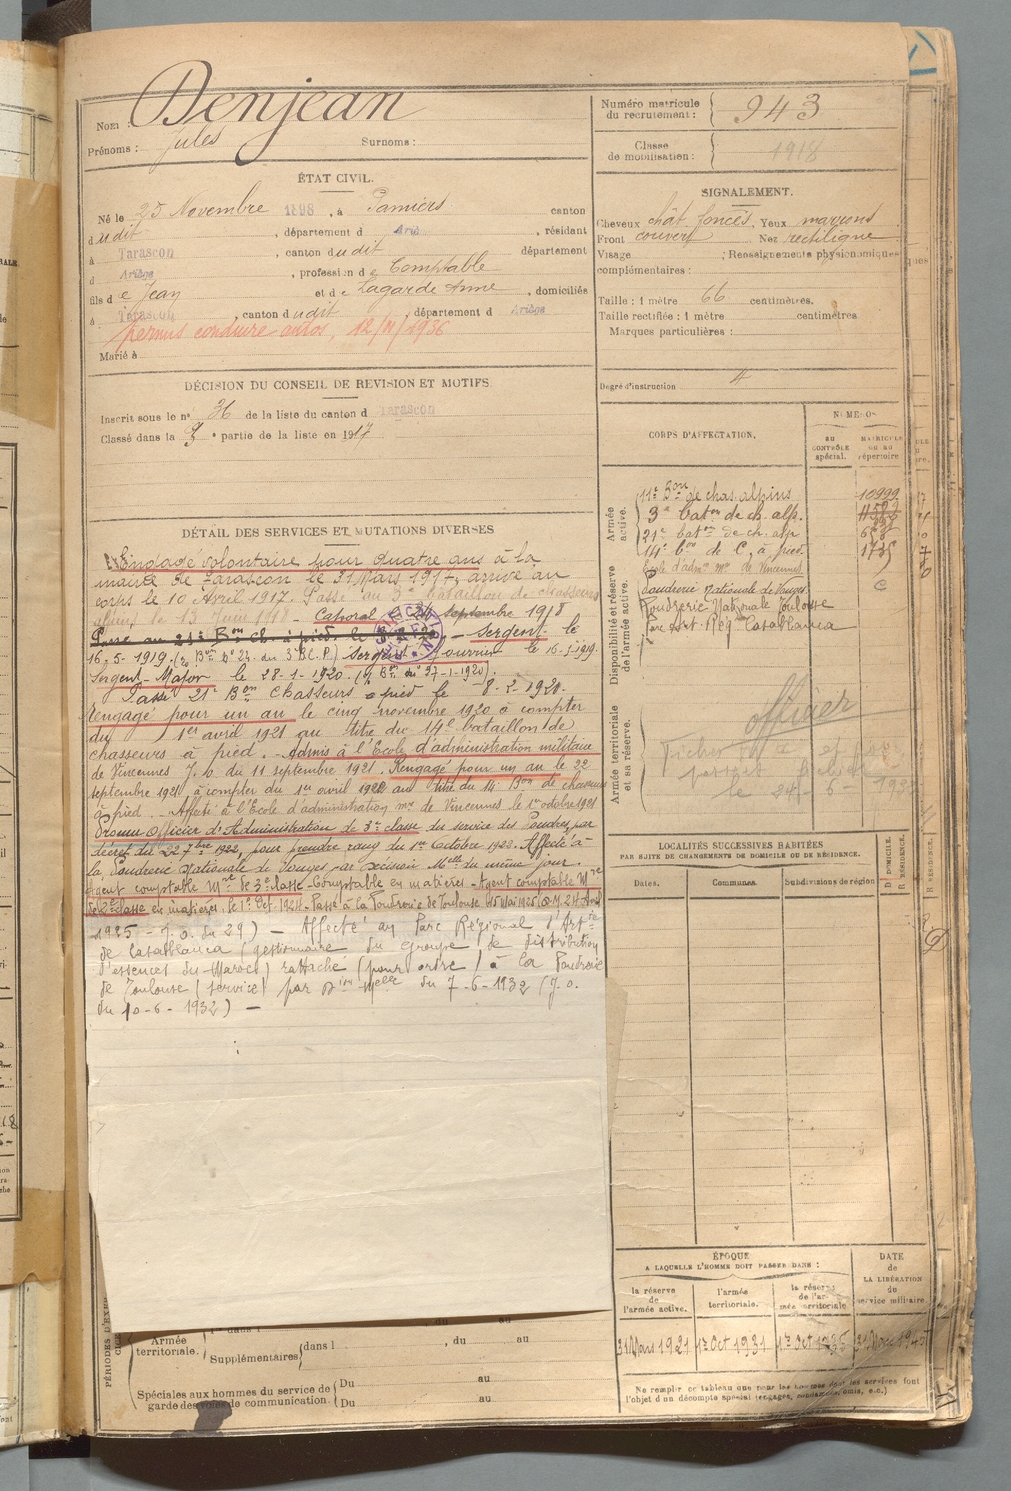 Nom : Denjean
Prénoms : Jules Surnoms :
Numéro matricule du recrutement : 943
Classe de mobilisation : 1918
ÉTAT CIVIL.
Né le 25 Novembre 1898, à Pamiers canton
dudit, département d Ariè, résidant
à Tarascon, canton dudit département
d Ariège, profession de Comptable
fils de Jean et de Lagarde Anne, domiciliés
à Tarascon, canton dudit, département d Ariège
permis conduire autos, 12/ /1936
Marié à
SIGNALEMENT.
Cheveux chât. foncés, Yeux marrons
Front couvert Nez rectiligne
Visage ; Renseignements physionomiques
complémentaires :
Taille : 1 mètre 66 centimètres.
Taille rectifiée : 1 mètre centimètres
Marques particulières :
Degré d'instruction 4
DÉCISION DU CONSEIL DE REVISION ET MOTIFS
Inscrit sous le n° 36 de la liste du canton d Tarascon
Classé dans la 3e partie de la liste en 1917
DÉTAIL DES SERVICES ET MUTATIONS DIVERSES
Engagé volontaire pour quatre ans à la
mairie de Tarascon le 31 Mars 1917, arrivé au
corps le 10 Avril 1917. Passé au 3e bataillon de chasseurs
alpins le 13 Juin 1918. Caporal le 24 Septembre 1918
Passé au 21e Bon ch. à pied le – Sergent le
16-5-1919. (Bon n° 24 du 3e B.C.P.) Sergent fourrier le 16-5-1919.
Sergent-Major le 28-1-1920. (Bon n° 27-1-1920).
Passé 21e Bon Chasseurs à pied le 8-2-1920.
Rengagé pour un an le cinq novembre 1920 à compter
du 1er avril 1921 au titre du 14e bataillon de
chasseurs à pied. – Admis à l'Ecole d'administration militaire
de Vincennes J. O. du 11 septembre 1921. Rengagé pour un an le 22
septembre 1921 à compter du 1er avril 1922 au titre du 14 Bon de chasseurs
à pied. Affecté à l'Ecole d'administration mre de Vincennes le 1er octobre 1921
Promu Officier d'Administration de 3e classe du service des Poudres, par
décret du 22 7bre 1922, pour prendre rang du 1er Octobre 1922. Affecté à
la Poudrerie Nationale de Vonges par décision Mlle du même jour.
Agent comptable Mre de 3e classe – Comptable en matières – Agent comptable Mre
de 2e classe en matières, le 1er Oct. 1924 – Passé à la Poudrerie de Toulouse le 15 Mai 1925 (D.M. 24 Avril
1925 – J.O. du 29) – Affecté au Parc Régional d'Artie
de Casablanca (gestionnaire du groupe de distribution
d'essences du Maroc) rattaché (pour ordre) à la Poudrerie
de Toulouse (service) par Don Mlle du 7-6-1932 (J.O.
du 10-6-1932) –
CORPS D'AFFECTATION.
NUMÉROS
au contrôle spécial.
matricule ou au répertoire
Armée active.
11e Bon de chas. alpins 10999
3e baton de ch. alp.
21e baton de ch. alp
14e bon de C. à pied 1735
Ecole d'admon mre de Vincennes
Disponibilité et réserve de l'armée active.
Poudrerie Nationale de Vonges
Poudrerie Nationale Toulouse
Parc Art. Rég. Casablanca
Armée territoriale et sa réserve.
officier
le 24-6-193
LOCALITÉS SUCCESSIVES HABITÉES
PAR SUITE DE CHANGEMENTS DE DOMICILE OU DE RÉSIDENCE.
Dates. Communes. Subdivisions de région D DOMICILE. R RÉSIDENCE.
ÉPOQUE
A LAQUELLE L'HOMME DOIT PASSER DANS :
la réserve de l'armée active. l'armée territoriale. la réserve de l'armée territoriale
DATE de LA LIBÉRATION du service militaire.
31 Mars 1921 1er Oct 1931 1er Oct 1935 31 Mars 1945
Ne remplir ce tableau que pour les hommes dont les services font
l'objet d'un décompte spécial (engagés, condamnés, omis, e.c.)
PÉRIODES D'EXER
Armée territoriale.
Supplémentaires dans l , du au
Spéciales aux hommes du service de
garde des voies de communication.
Du au
Du au